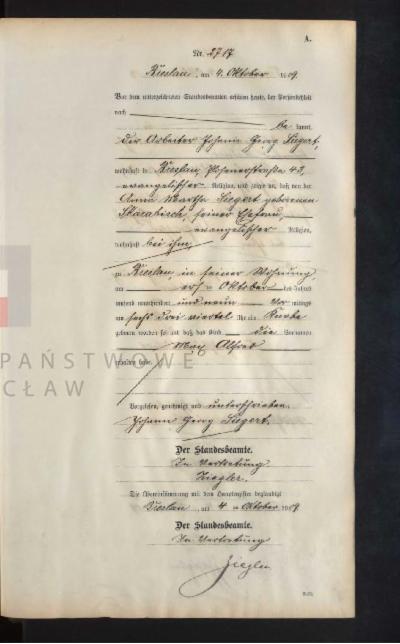 A.
Nr. 2717
Breslau, am 4. Oktober 1909.
Vor dem unterzeichneten Standesbeamten erschien heute, der Persönlichkeit
nach
be kannt,
der Arbeiter Johann Georg Siegert,
wohnhaft in Breslau, Posenerstraße 43,
evangelischer Religion, und zeigte an, daß von der
Anna Martha Siegert geborenen
Skarabisch, seiner Ehefrau,
evangelischer Religion,
wohnhaft bei ihm,
zu Breslau in seiner Wohnung
am ersten Oktober des Jahres
tausend neunhundert und neun Vor mittags
um sechs drei viertel Uhr ein Knabe
geboren worden sei und daß das Kind die Vornamen
Max Alfred
erhalten habe.
Vorgelesen, genehmigt und unterschrieben.
Johann Georg Siegert.
Der Standesbeamte.
In Vertretung
Ziegler.
Die Übereinstimmung mit dem Hauptregister beglaubigt
Breslau, am 4. Oktober 1909.
Der Standesbeamte.
In Vertretung
Ziegler
PAŃSTWOWE
CŁAW